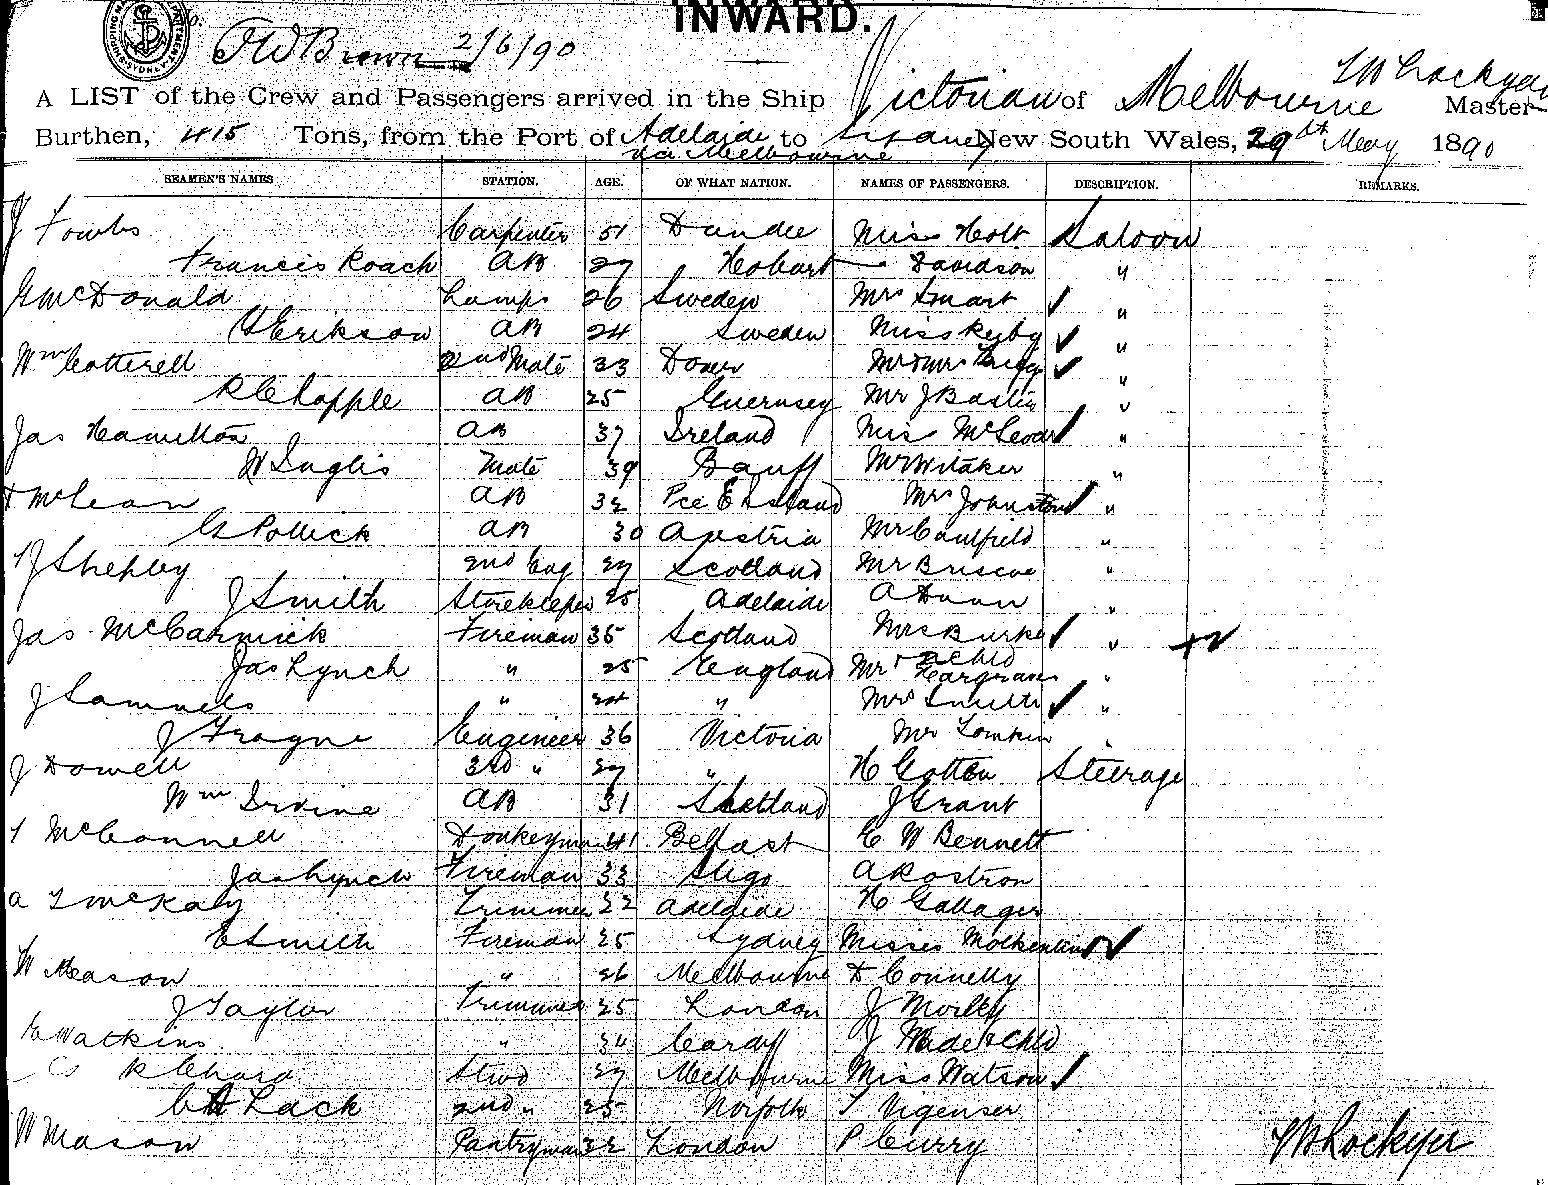 INWARD.
JW Brown 2/6/90
T W Lockyer
A LIST of the Crew and Passengers arrived in the Ship Victorian of Melbourne Master
Burthen, 415 Tons, from the Port of Adelaide to Sydney New South Wales, 29th May 1890
via Melbourne
SEAMEN'S NAMES STATION. AGE. OF WHAT NATION. NAMES OF PASSENGERS. DESCRIPTION. REMARKS.
J Fowlis Carpenter 51 Dundee Miss Holt Saloon
Francis Roach AB 27 Hobart — Davidson "
G McDonald Lamps 26 Sweden Mrs Smart "
Erikson AB 24 Sweden Miss Kerby "
Wm Cotterell 2nd Mate 33 Dover Mr & Mrs "
R Chapple AB 25 Guernsey Mr J Bastin "
Jas Hamilton AB 37 Ireland Miss McLeod "
W Inglis Mate 39 Banff Mr Witaker "
D McLean AB 32 Pce Ed Island Mrs Johnston "
G Pollick AB 30 Austria Mr Caulfield "
Shepley 2nd Eng 27 Scotland Mr Briscoe "
J Smith Storekeeper 25 Adelaide A Dunn "
Jas McCarmick Fireman 35 Scotland Mrs Burke "
Jas Lynch " 25 England Mr & child Hargraves "
J Samuels " 24 " Mrs Smith "
J Fragne Engineer 36 Victoria Mr Tomkin "
J Dowell 3rd " 27 " H Cotton Steerage
Wm Irvine AB 31 Shetland J Grant
McConnell Donkeyman 41 Belfast E W Bennett
Jas Lynch Fireman 33 Sligo A Rostron
A McKay Trimmer 32 Adelaide H Gallager
E Smith Fireman 25 Sydney Misses
W Meason " 26 Melbourne D Connelly
J Taylor Trimmer 25 London J Morley
Watkins " 34 Cardiff J Wade & Chld
R Chard Stwd 27 Melbourne Miss Watson
C H Lack 2nd " 25 Norfolk T Vigenser
W Mason Pantryman 32 London P Curry
T W Lockyer